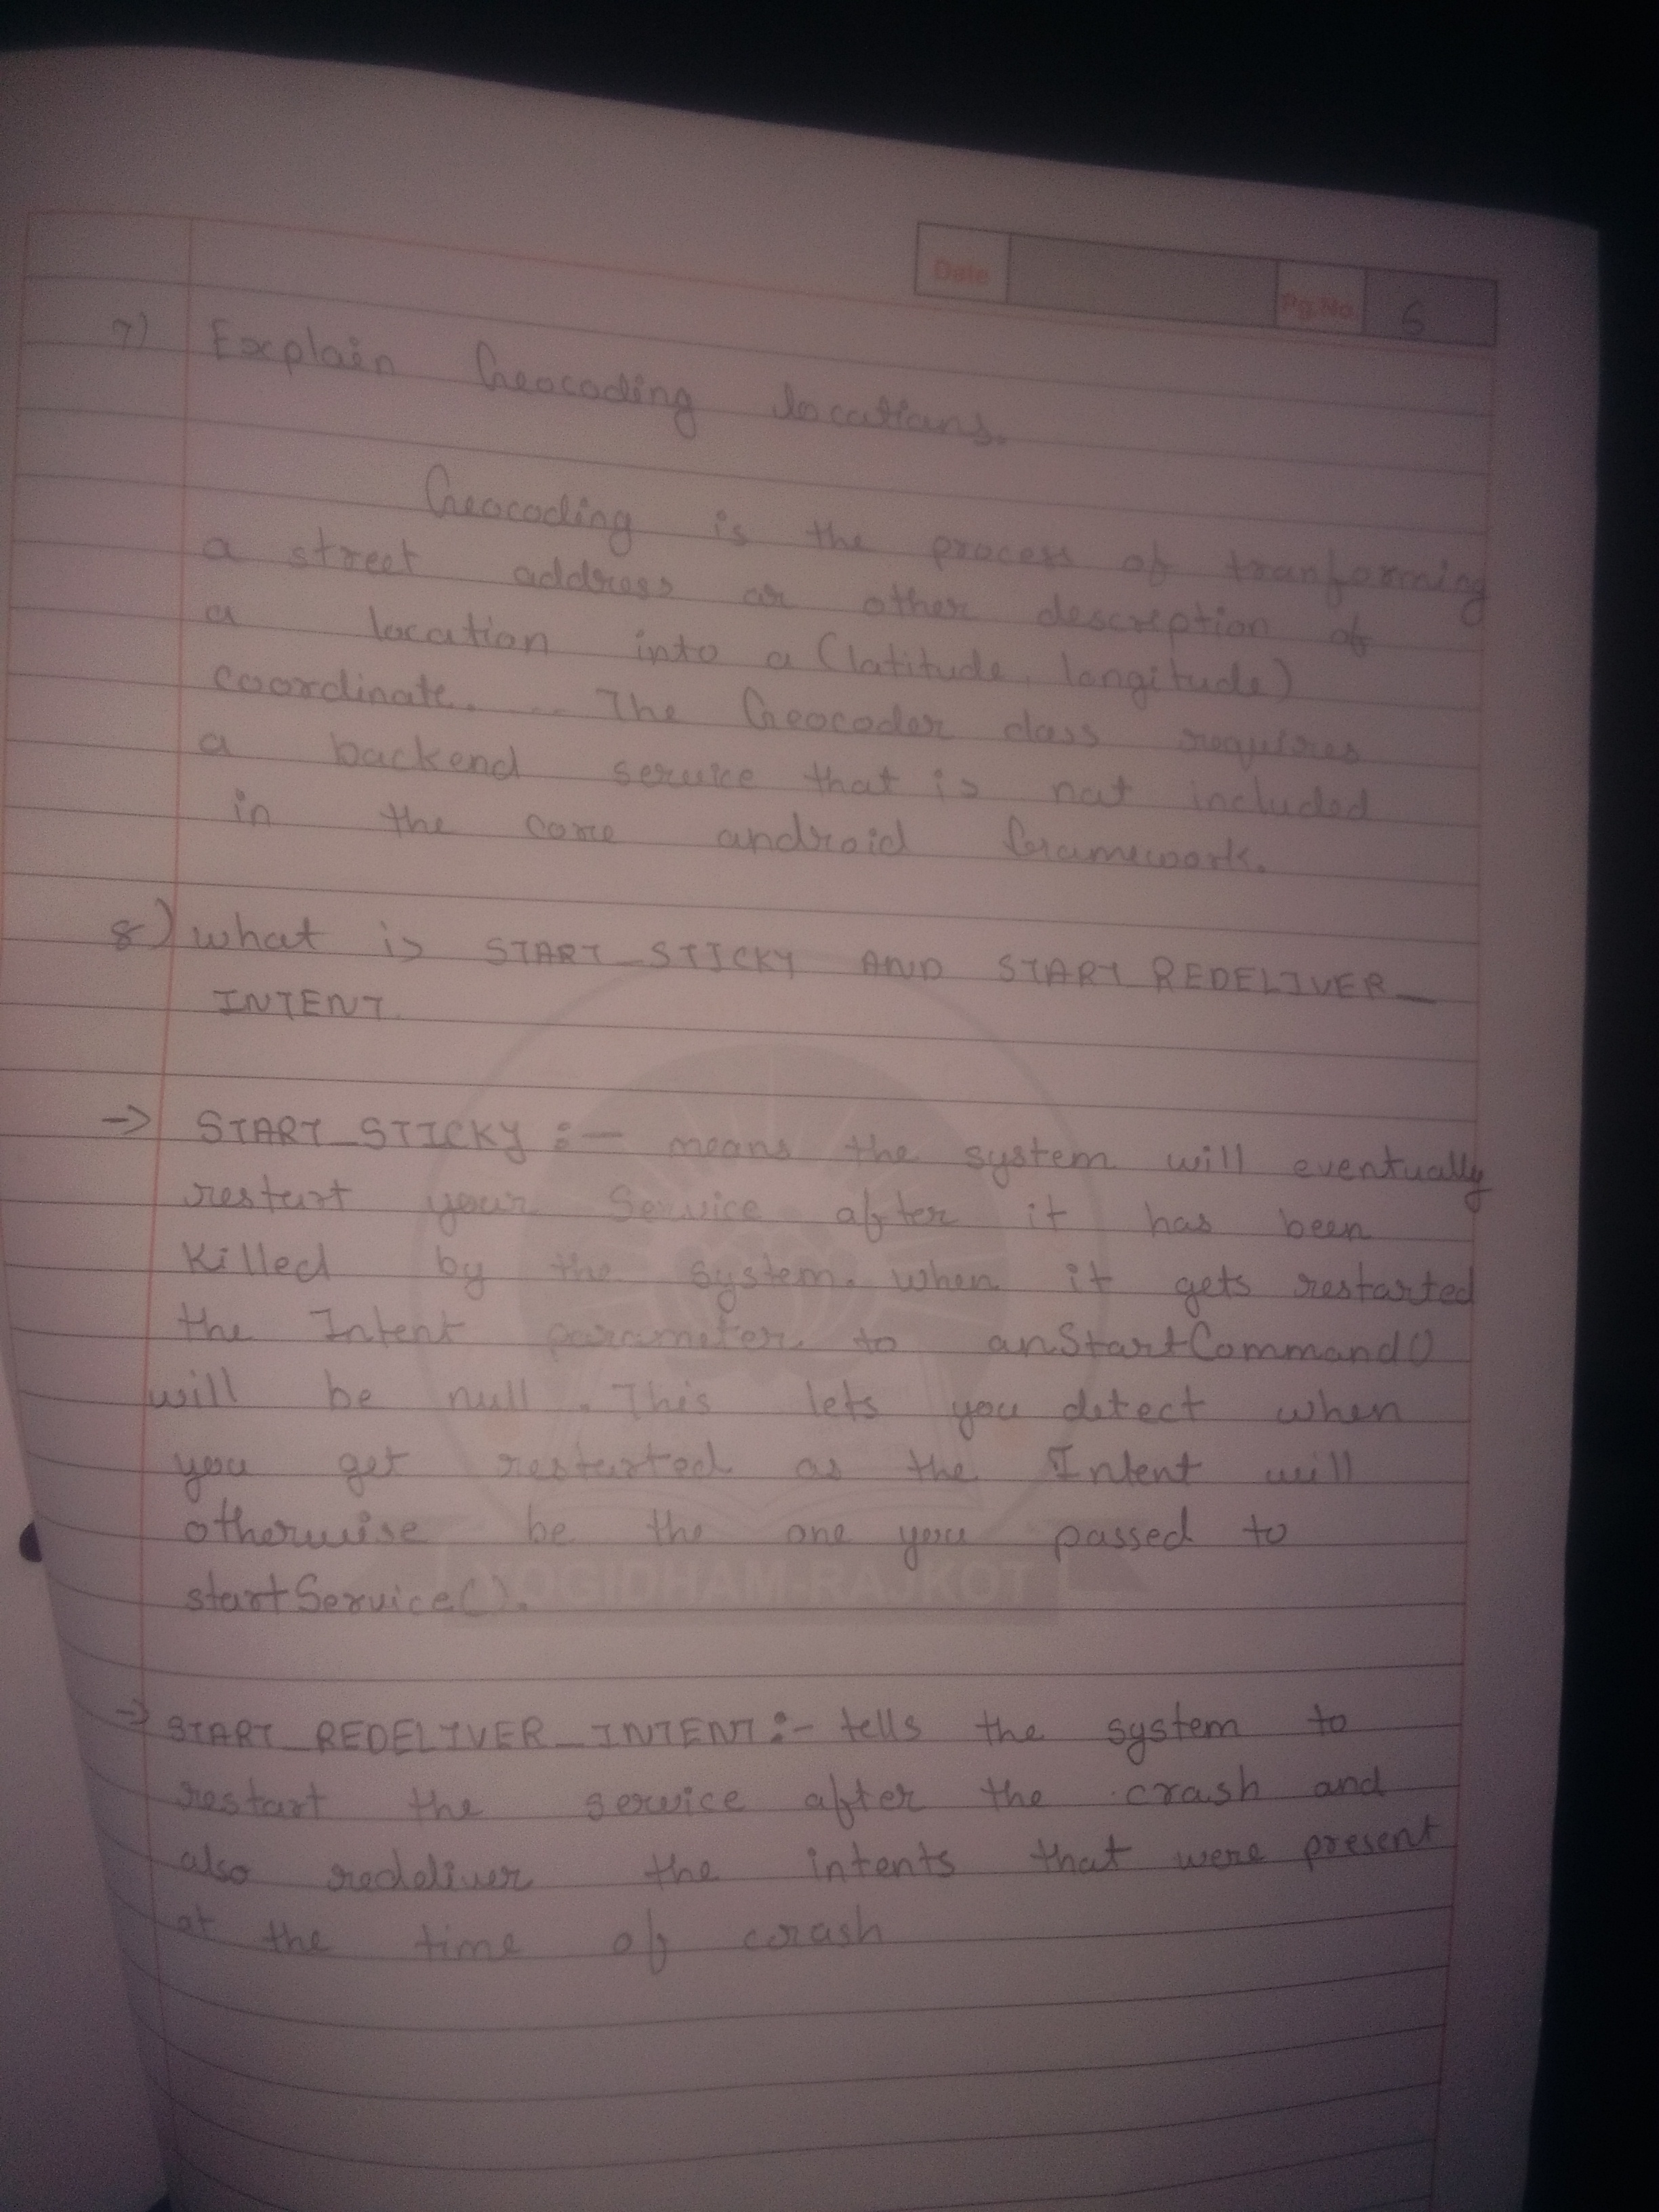 Date
Pg.No. 6
7) Explain Geocoding locations.
Geocoding is the process of tranforming
a street address or other description of
a location into a (latitude, longitude)
coordinate. The Geocoder class requires
a backend service that is not included
in the core android framework.
8) what is START_STICKY AND START_REDELIVER_
INTENT.
-> START_STICKY :- means the system will eventually
restart your Service after it has been
killed by the system. when it gets restarted
the Intent parameter to onStartCommand()
will be null. This lets you detect when
you get restarted as the Intent will
otherwise be the one you passed to
startService().
YOGIDHAM-RAJKOT
-> START_REDELIVER_INTENT :- tells the system to
restart the service after the crash and
also redeliver the intents that were present
at the time of crash